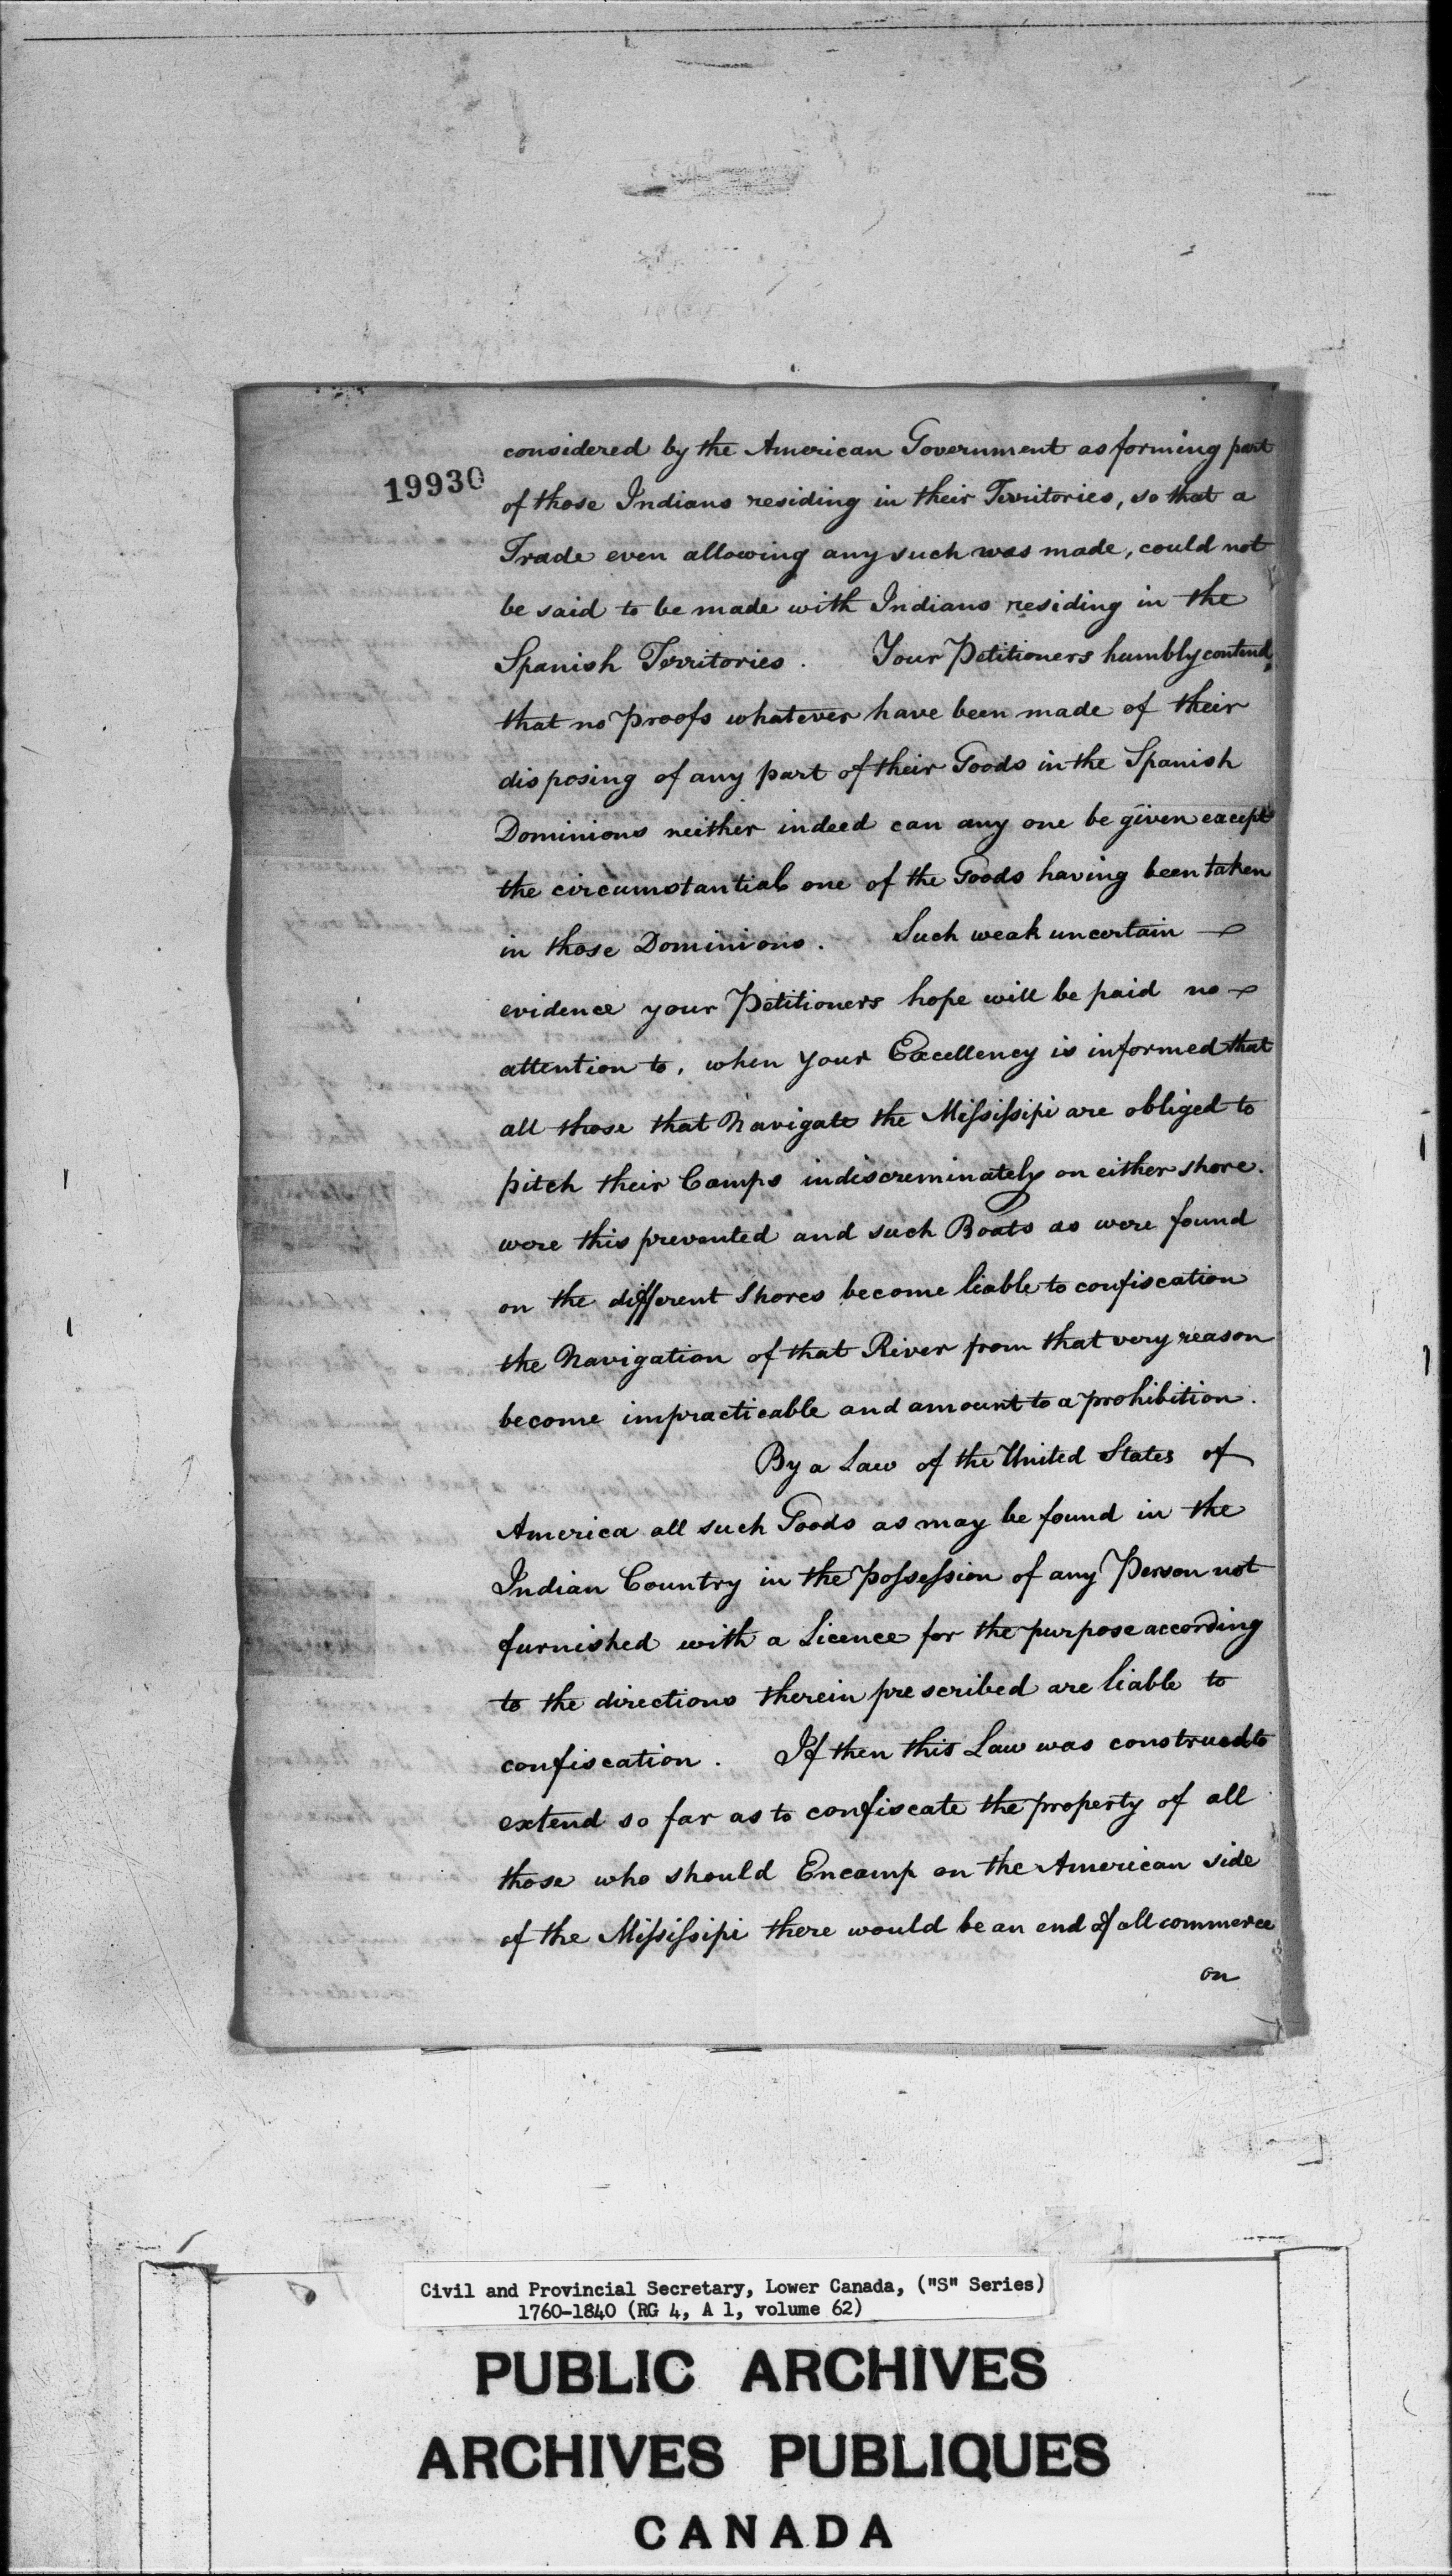 19930
considered by the American Government as forming part
of those Indians residing in their Territories, so that a
Trade even allowing any such was made, could not
be said to be made with Indians residing in the
Spanish Territories. Your Petitioners humbly contend,
that no proofs whatever have been made of their
disposing of any part of their Goods in the Spanish
Dominions neither indeed can any one be given except
the circumstantial one of the Goods having been taken
in those Dominions. Such weak uncertain
evidence your Petitioners hope will be paid no
attention to, when your Excellency is informed that
all those that Navigate the Miſsiſsipi are obliged to
pitch their Camps indiscreminately on either shore.
were this prevented and such Boats as were found
on the different Shores become liable to confiscation
the Navigation of that River from that very reason
become impracticable and amount to a prohibition.
By a Law of the United States of
America all such Goods as may be found in the
Indian Country in the poſseſsion of any Person not
furnished with a Licence for the purpose according
to the directions therein prescribed are liable to
confiscation. If then this Law was construed to
extend so far as to confiscate the property of all
those who should Encamp on the American side
of the Miſsiſsipi there would be an end of all commerce
on
Civil and Provincial Secretary, Lower Canada, ("S" Series)
1760-1840 (RG 4, A 1, volume 62)
PUBLIC ARCHIVES
ARCHIVES PUBLIQUES
CANADA